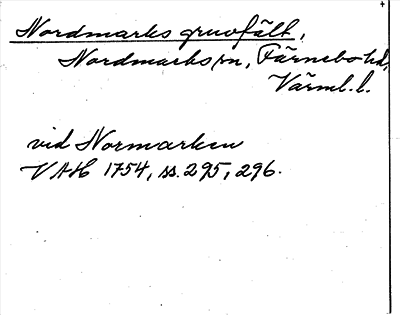 Nordmarks gruvfält,
Nordmarks sn, Färnebo hd,
Värml. l.
vid Normarken
VAH 1754, ss. 295, 296.